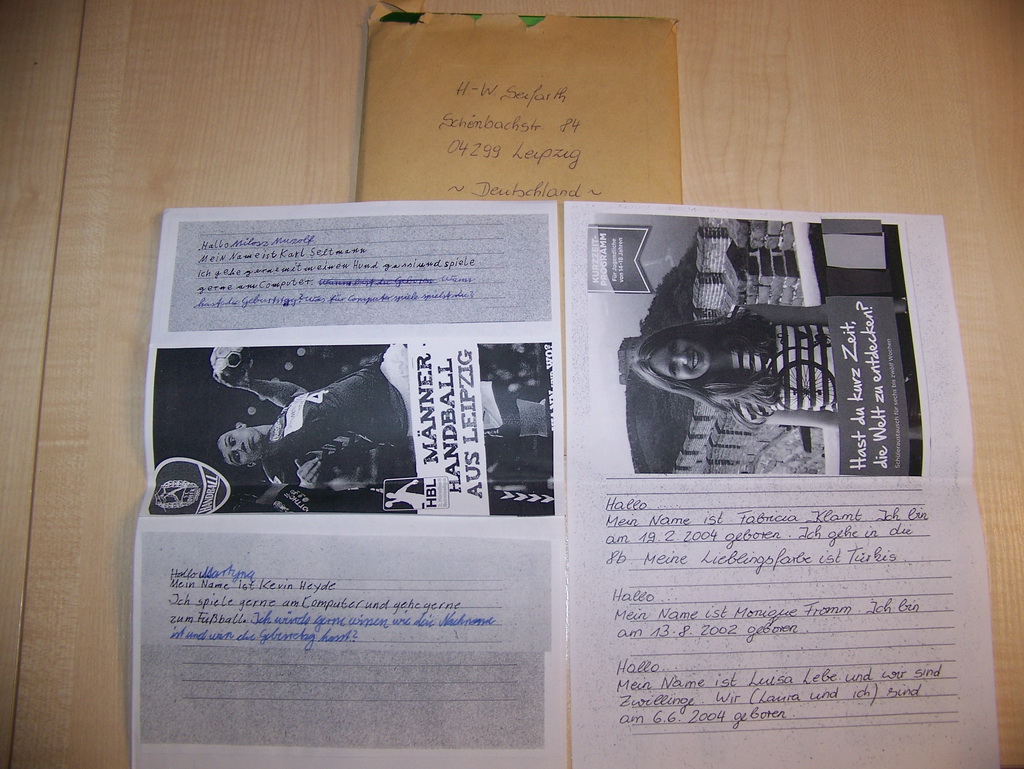 H-W Seifarth
Schönbachstr. 84
04299 Leipzig
~ Deutschland ~
Hallo Milosz
Mein Name ist Karl Seltmann
ich gehe gerne mit meinen Hund gassi und spiele
gerne am Computer. Wann
hast du Geburtstag? Was für Computer spiele spielst du?
MÄNNER
HANDBALL
AUS LEIPZIG
HBL
HANDBALL
Hallo Martyna
Mein Name ist Kevin Heyde
Ich spiele gerne am Computer und gehe gerne
zum Fußball. Ich würde gern wissen wie dein Nachname
ist und wan du Geburtstag hasst?
KURZZEIT-
PROGRAMM
Für Jugendliche
von 14-18 Jahren
Hast du kurz Zeit,
die Welt zu entdecken?
Schüleraustausch für sechs bis zwölf Wochen
Hallo
Mein Name ist Fabricia Klamt. Ich bin
am 19.2.2004 geboren. Ich gehe in die
8b. Meine Lieblingsfarbe ist Türkis.
Hallo
Mein Name ist Monique Fromm. Ich bin
am 13.8.2002 geboren.
Hallo
Mein Name ist Luisa Lebe und wir sind
Zwillinge. Wir (Laura und ich) sind
am 6.6.2004 geboren.